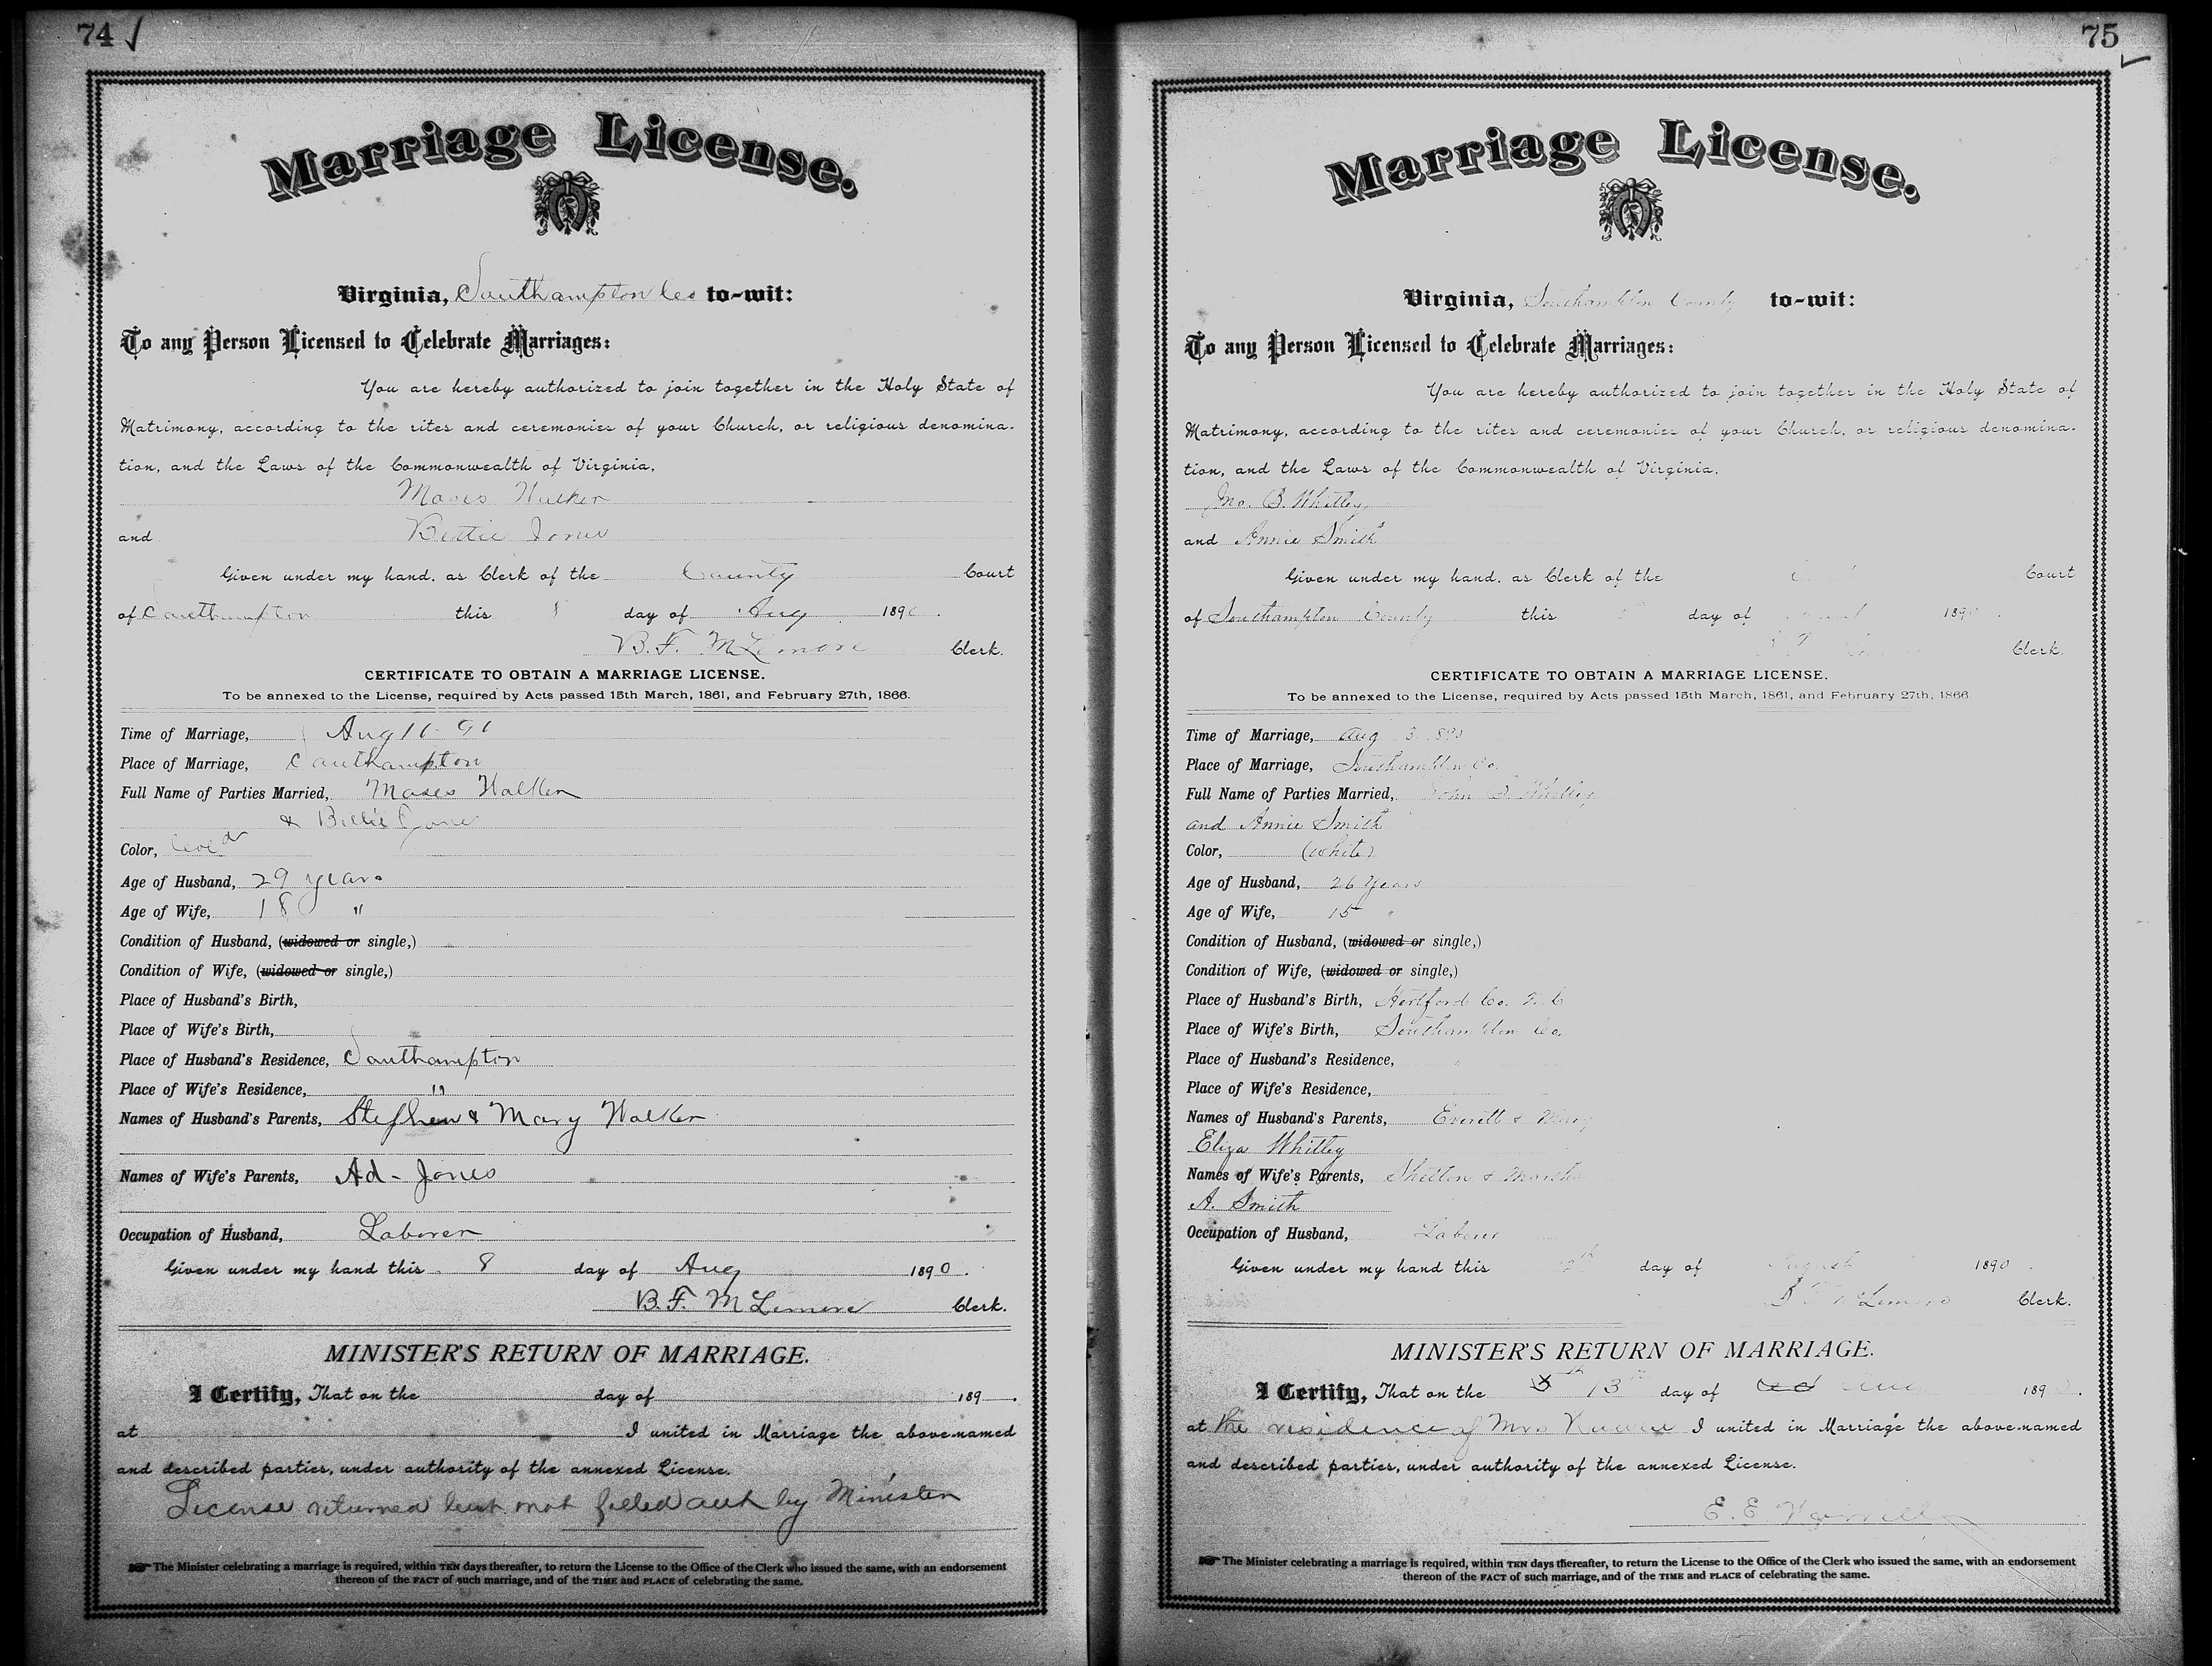 74
Marriage License.
Virginia, Southampton Co to-wit:
To any Person Licensed to Celebrate Marriages:
You are hereby authorized to join together in the Holy State of
Matrimony, according to the rites and ceremonies of your Church, or religious denomina-
tion, and the Laws of the Commonwealth of Virginia,
Moses Walker
and Bettie Jones
Given under my hand, as Clerk of the County Court
of Southampton this 8 day of Aug 1890.
B. F. McLemore Clerk.
CERTIFICATE TO OBTAIN A MARRIAGE LICENSE.
To be annexed to the License, required by Acts passed 15th March, 1861, and February 27th, 1866.
Time of Marriage, Aug
Place of Marriage, Southampton
Full Name of Parties Married, Moses Walker
& Bettie Jones
Color, Cold
Age of Husband, 29 years
Age of Wife, 18 "
Condition of Husband, (widowed or single,)
Condition of Wife, (widowed or single,)
Place of Husband's Birth,
Place of Wife's Birth,
Place of Husband's Residence, Southampton
Place of Wife's Residence, "
Names of Husband's Parents, Stephen & Mary Walker
Names of Wife's Parents, Ad- Jones
Occupation of Husband, Laborer
Given under my hand this 8 day of Aug 1890.
B. F. McLemore Clerk.
MINISTER'S RETURN OF MARRIAGE.
I Certify, That on the day of 189 .
at I united in Marriage the above-named
and described parties, under authority of the annexed License.
License returned but not filled out by Minister
The Minister celebrating a marriage is required, within TEN days thereafter, to return the License to the Office of the Clerk who issued the same, with an endorsement
thereon of the FACT of such marriage, and of the TIME and PLACE of celebrating the same.
75
Marriage License.
Virginia, Southampton County to-wit:
To any Person Licensed to Celebrate Marriages:
You are hereby authorized to join together in the Holy State of
Matrimony, according to the rites and ceremonies of your Church, or religious denomina-
tion, and the Laws of the Commonwealth of Virginia,
Jno. B. Whitley
and Annie Smith
Given under my hand, as Clerk of the Court
of Southampton County this day of 1890.
Clerk.
CERTIFICATE TO OBTAIN A MARRIAGE LICENSE.
To be annexed to the License, required by Acts passed 15th March, 1861, and February 27th, 1866.
Time of Marriage, Aug
Place of Marriage, Southampton Co.
Full Name of Parties Married, John B. Whitley
and Annie Smith
Color, (white)
Age of Husband, 26 Years
Age of Wife, 15 "
Condition of Husband, (widowed or single,)
Condition of Wife, (widowed or single,)
Place of Husband's Birth, Hertford Co. N.C
Place of Wife's Birth, Southampton Co.
Place of Husband's Residence, "
Place of Wife's Residence,
Names of Husband's Parents, Everett & Mary
Eliza Whitley
Names of Wife's Parents, Shelton & Martha
A. Smith
Occupation of Husband, Laborer
Given under my hand this day of August 1890.
B F McLemore Clerk.
MINISTER'S RETURN OF MARRIAGE.
I Certify, That on the 13 day of 189 .
at the residence of Mrs I united in Marriage the above-named
and described parties, under authority of the annexed License.
E. E.
The Minister celebrating a marriage is required, within TEN days thereafter, to return the License to the Office of the Clerk who issued the same, with an endorsement
thereon of the FACT of such marriage, and of the TIME and PLACE of celebrating the same.